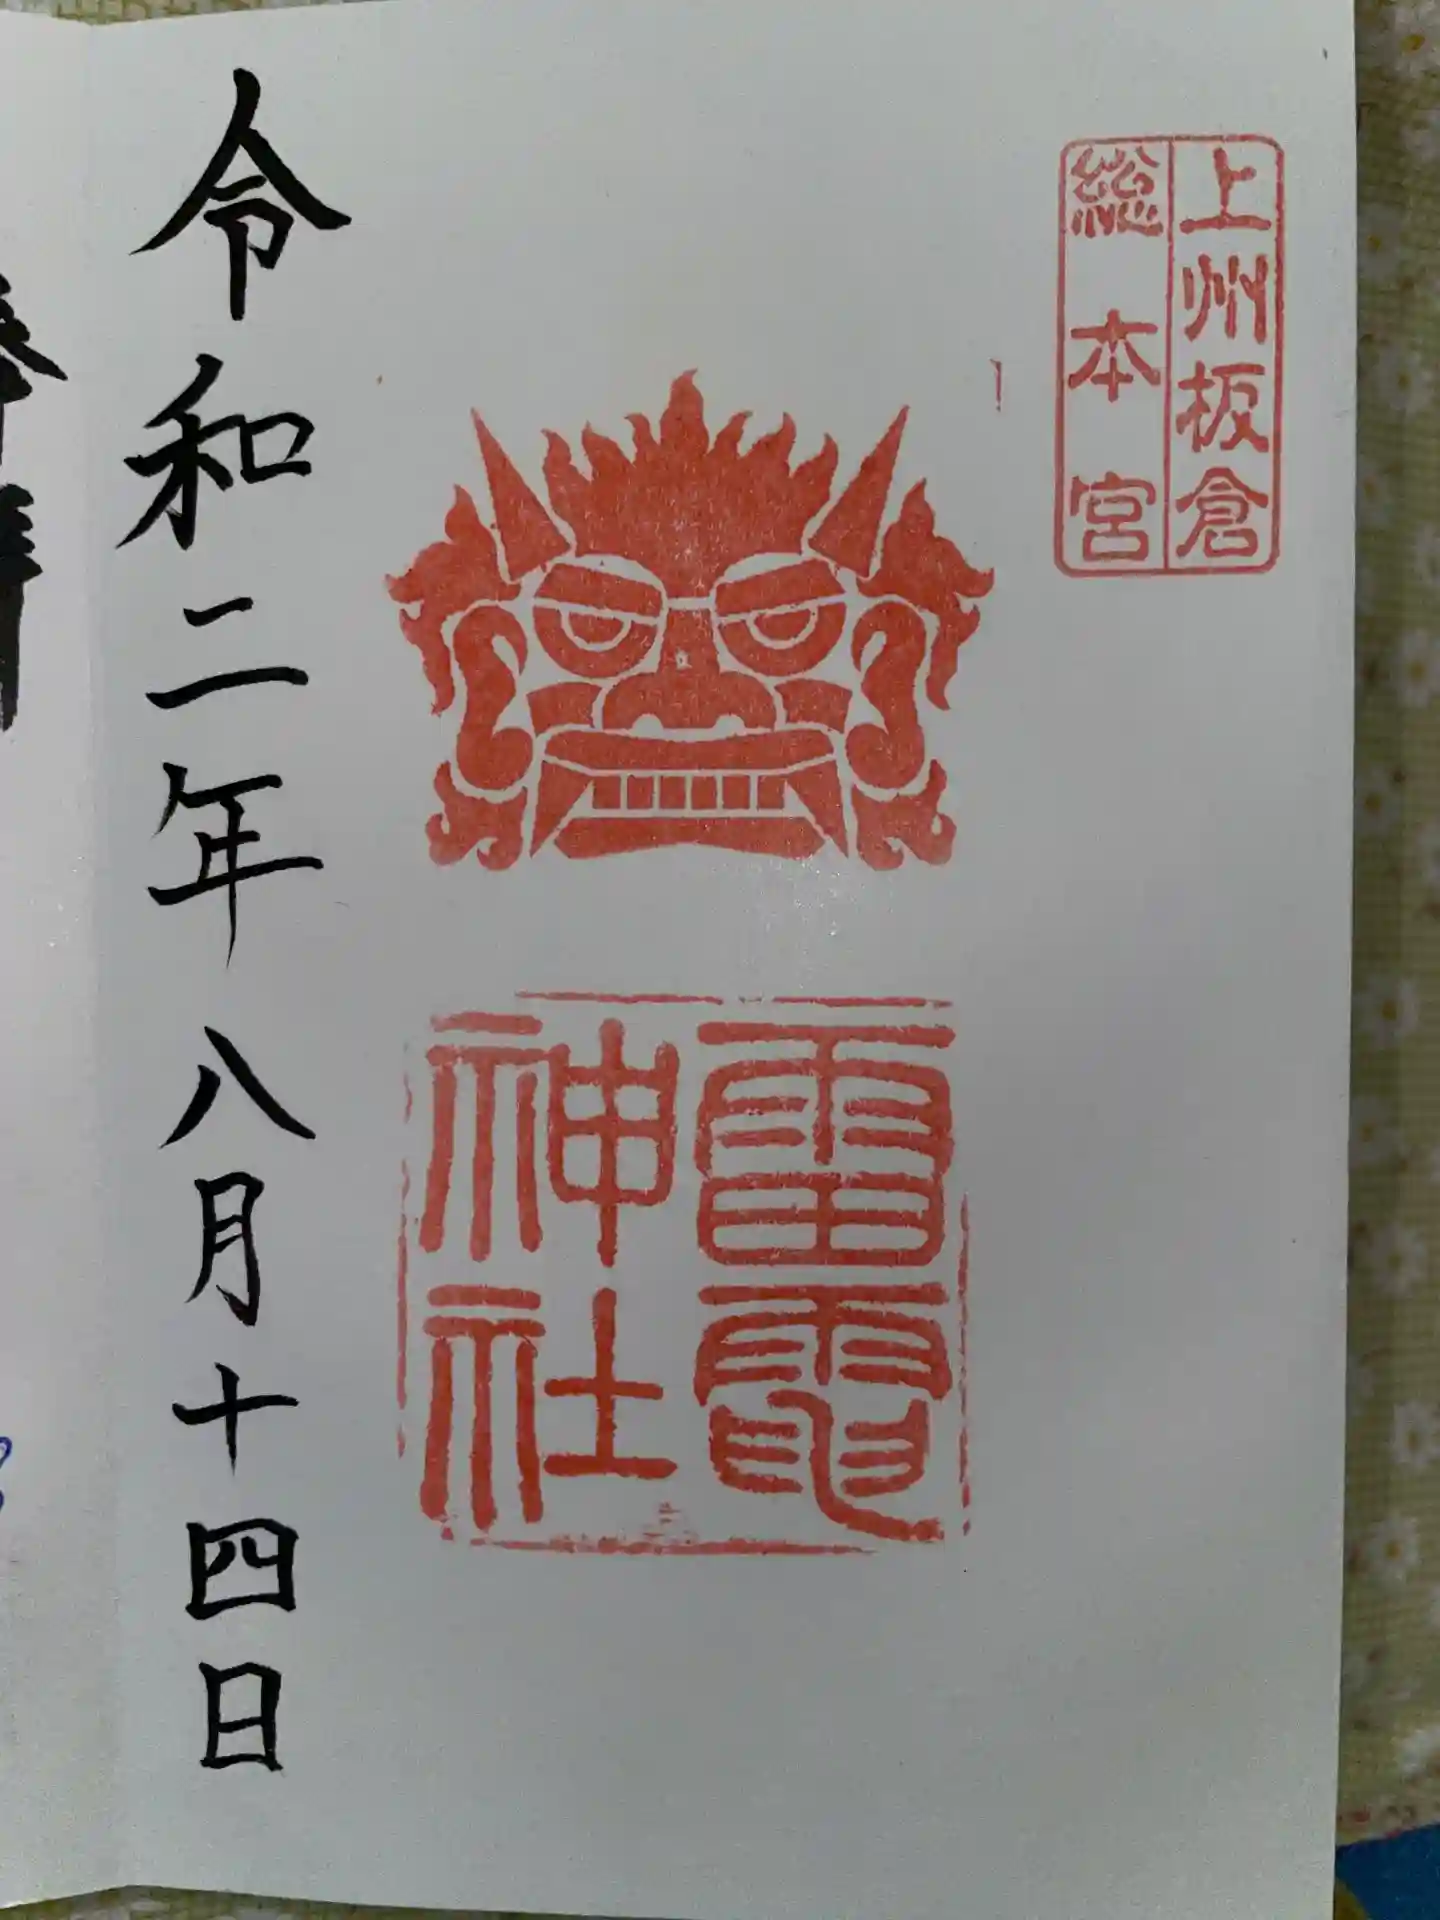 上州板倉
総本宮
雷電
神社
令和二年八月十四日